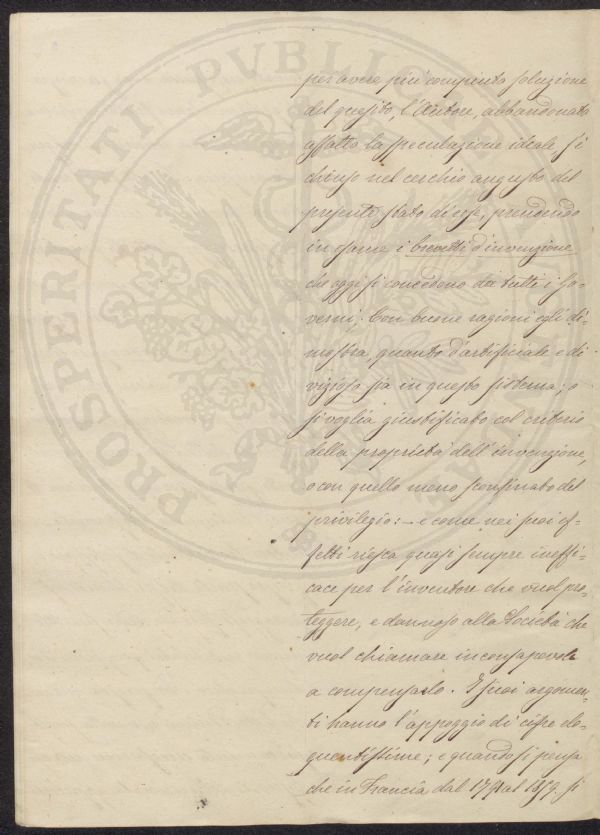 per avere più compiuta soluzione
del quesito, l'Autore, abbandonata
affatto la speculazione ideale, si
chiuse nel cerchio angusto del
presente stato di cose, prendendo
in esame i brevetti d'invenzione
che oggi si concedono da tutti i Go-
verni. Con buone ragioni egli di-
mostra, quanto d'artificiale e di
vizioso sia in questo sistema; o
si voglia giustificato col criterio
della proprietà dell'invenzione,
o con quello meno sconfinato del
privilegio: — e come nei suoi ef-
fetti riesca quasi sempre ineffi-
cace per l'inventore che vuol pro-
teggere, e dannoso alla Società che
vuol chiamare inconsapevole
a compensarlo. I suoi argomen-
ti hanno l'appoggio di cifre elo-
quentissime; e quando si pensa
che in Francia dal 1791 al 1859. si
PROSPERITATI PVBLICAE